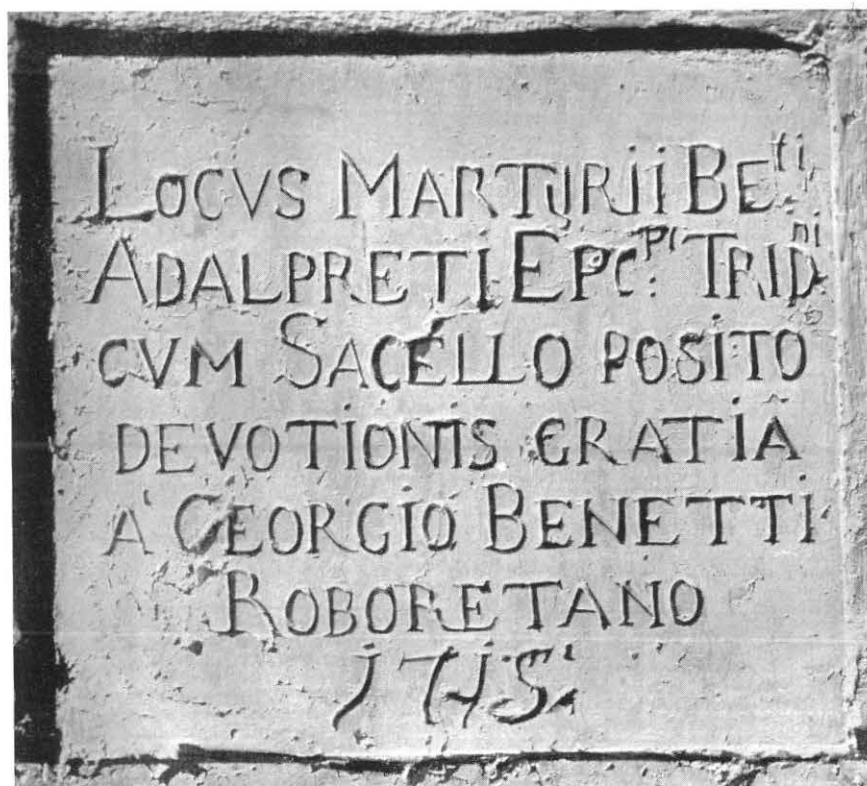 LOCVS MARTIJRIJ BEti.
ADALPRETI EPCPI. TRIDni
CVM SACELLO POSITO
DEVOTIONIS GRATIA
A GEORGIO BENETTI
ROBORETANO
1715.